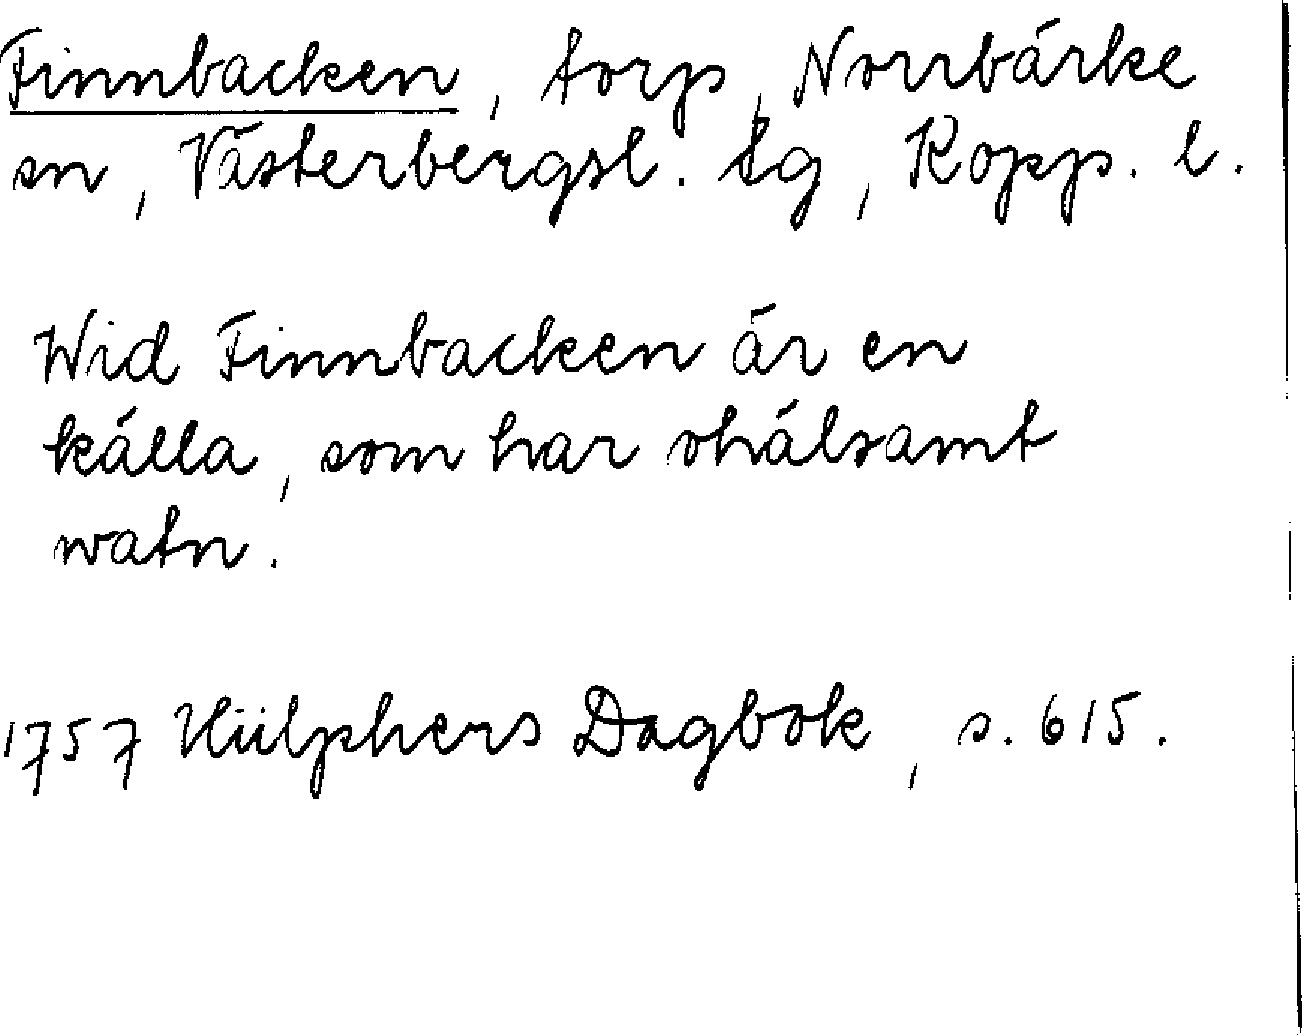 Finnbacken, torp, Norrbärke
sn, Västerbergsl. tg, Kopp. l.
Wid Finnbacken är en
källa, som har ohälsamt
watn.
1757 Hülphers Dagbok, s. 615.